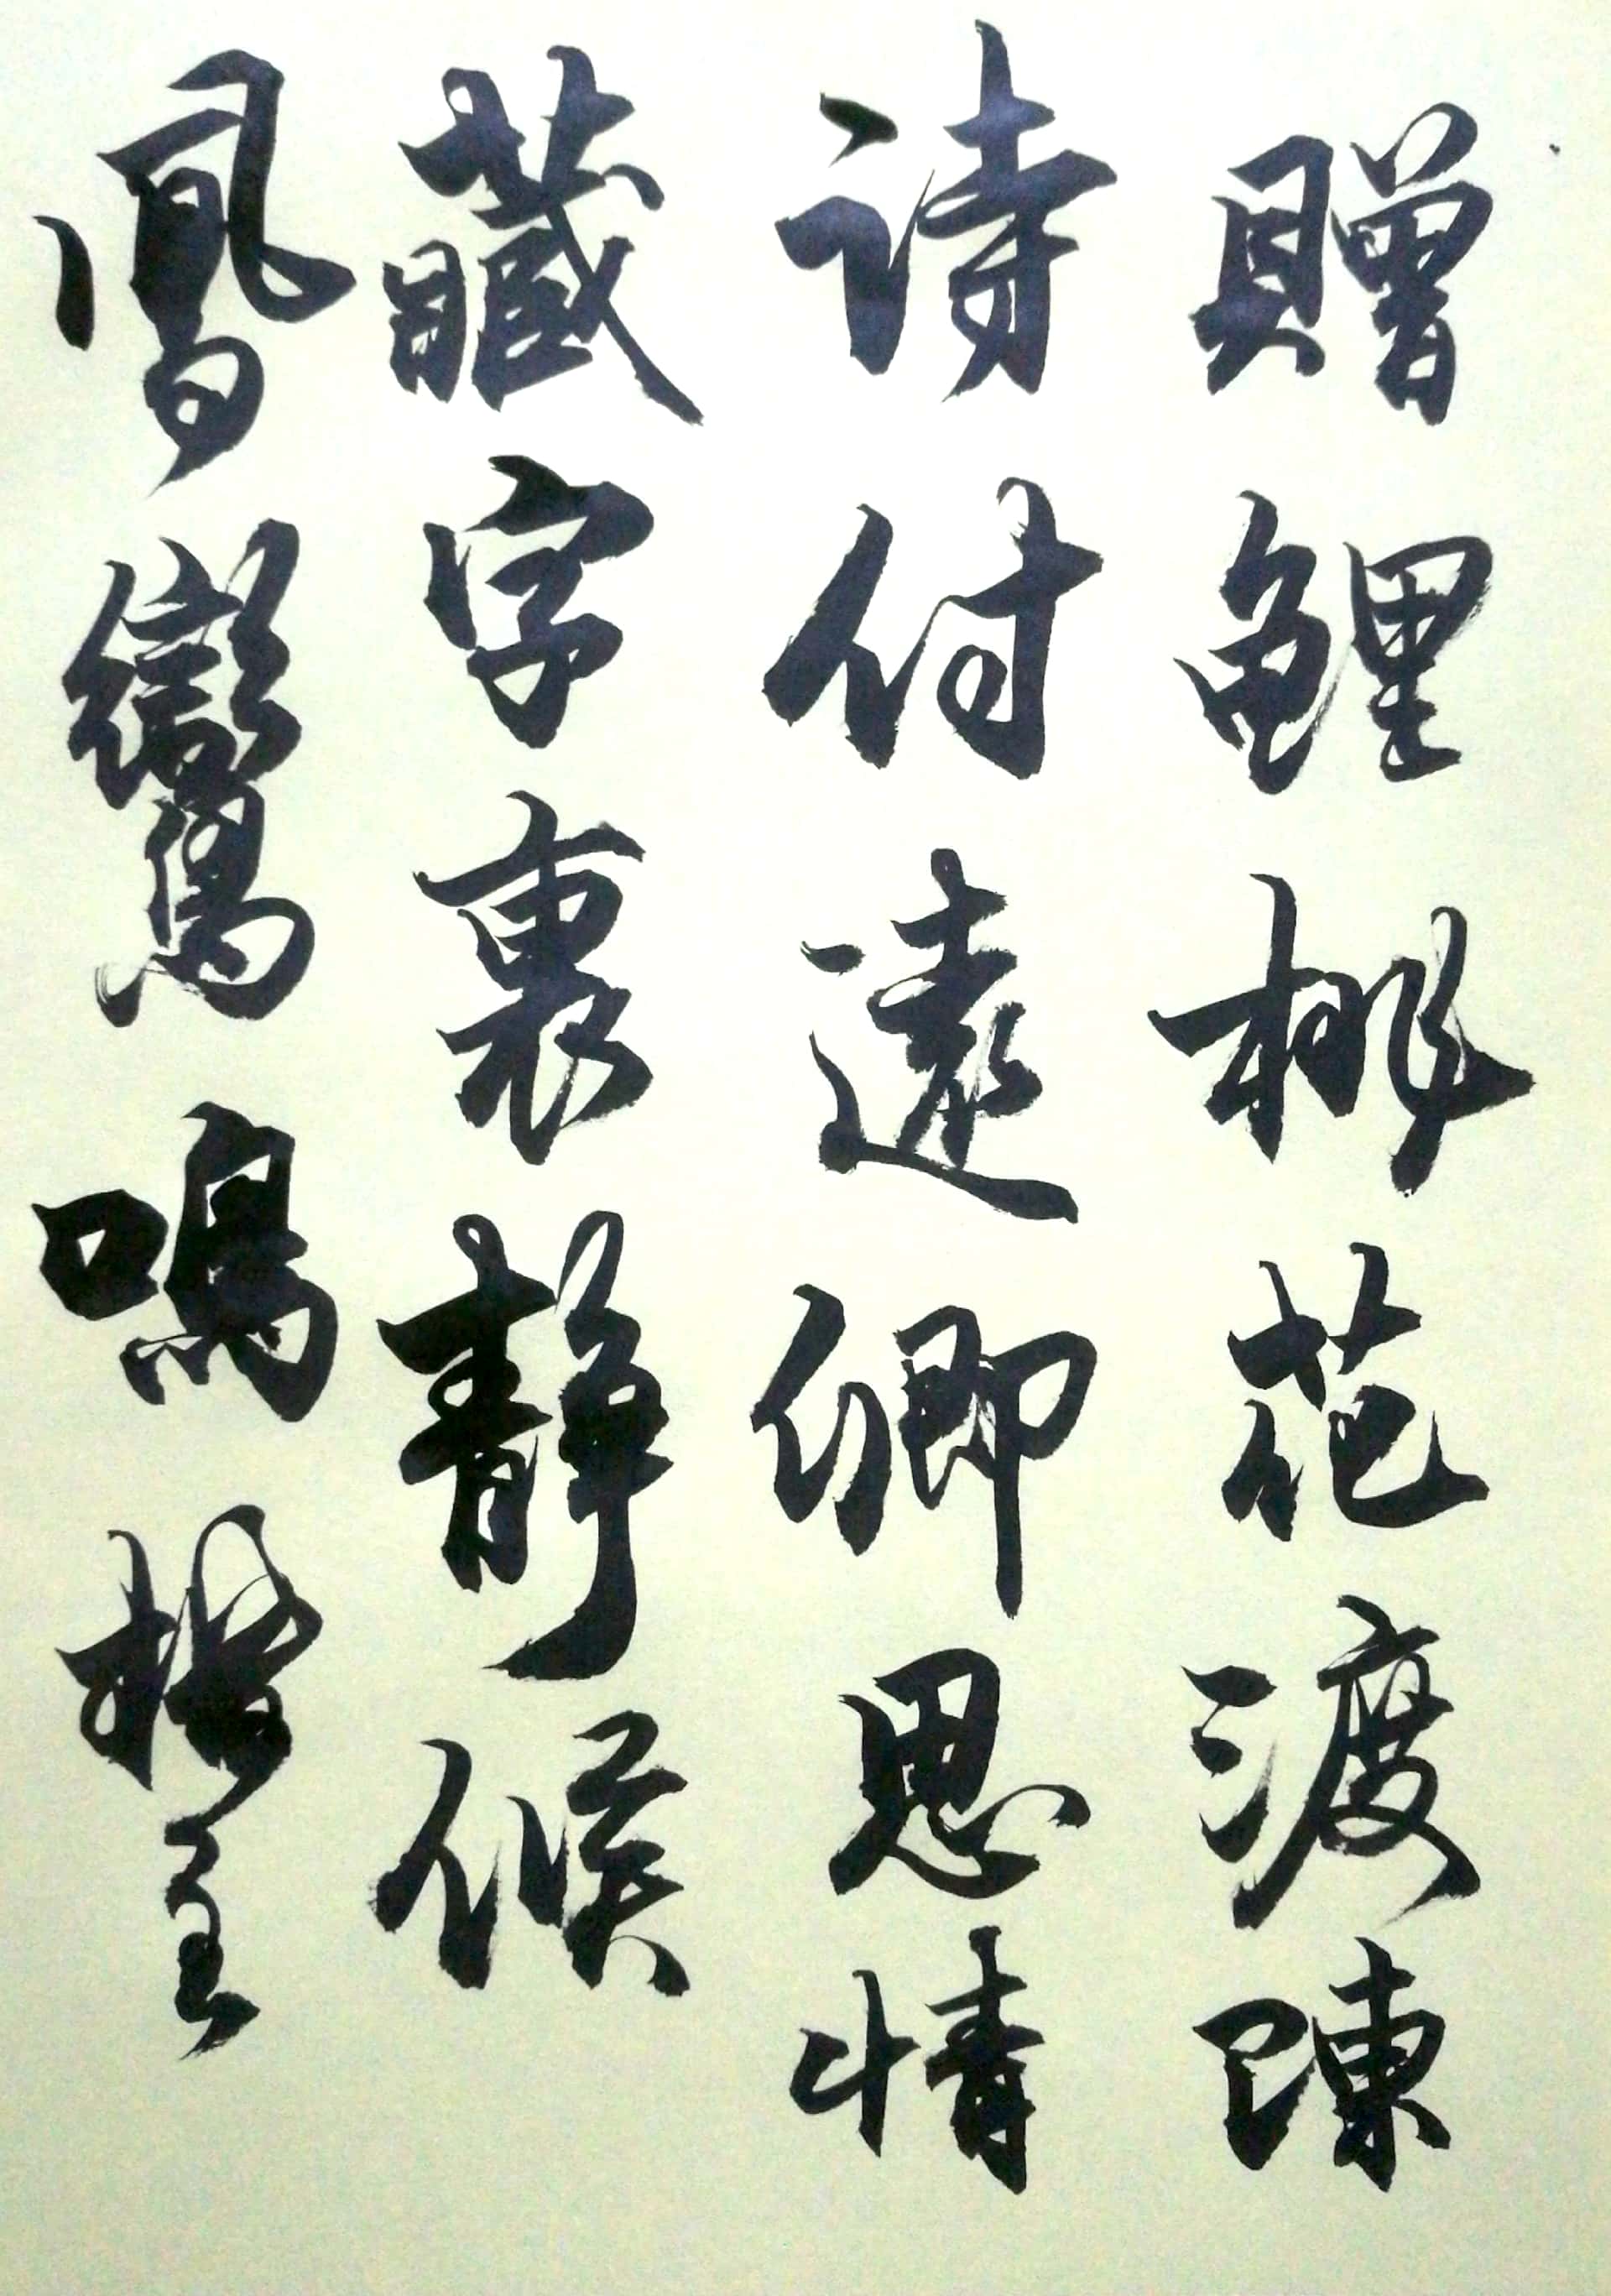 贈鯉桃花渡陳
诗付遠卿思情
藏字裏靜候
鳳鸞鳴